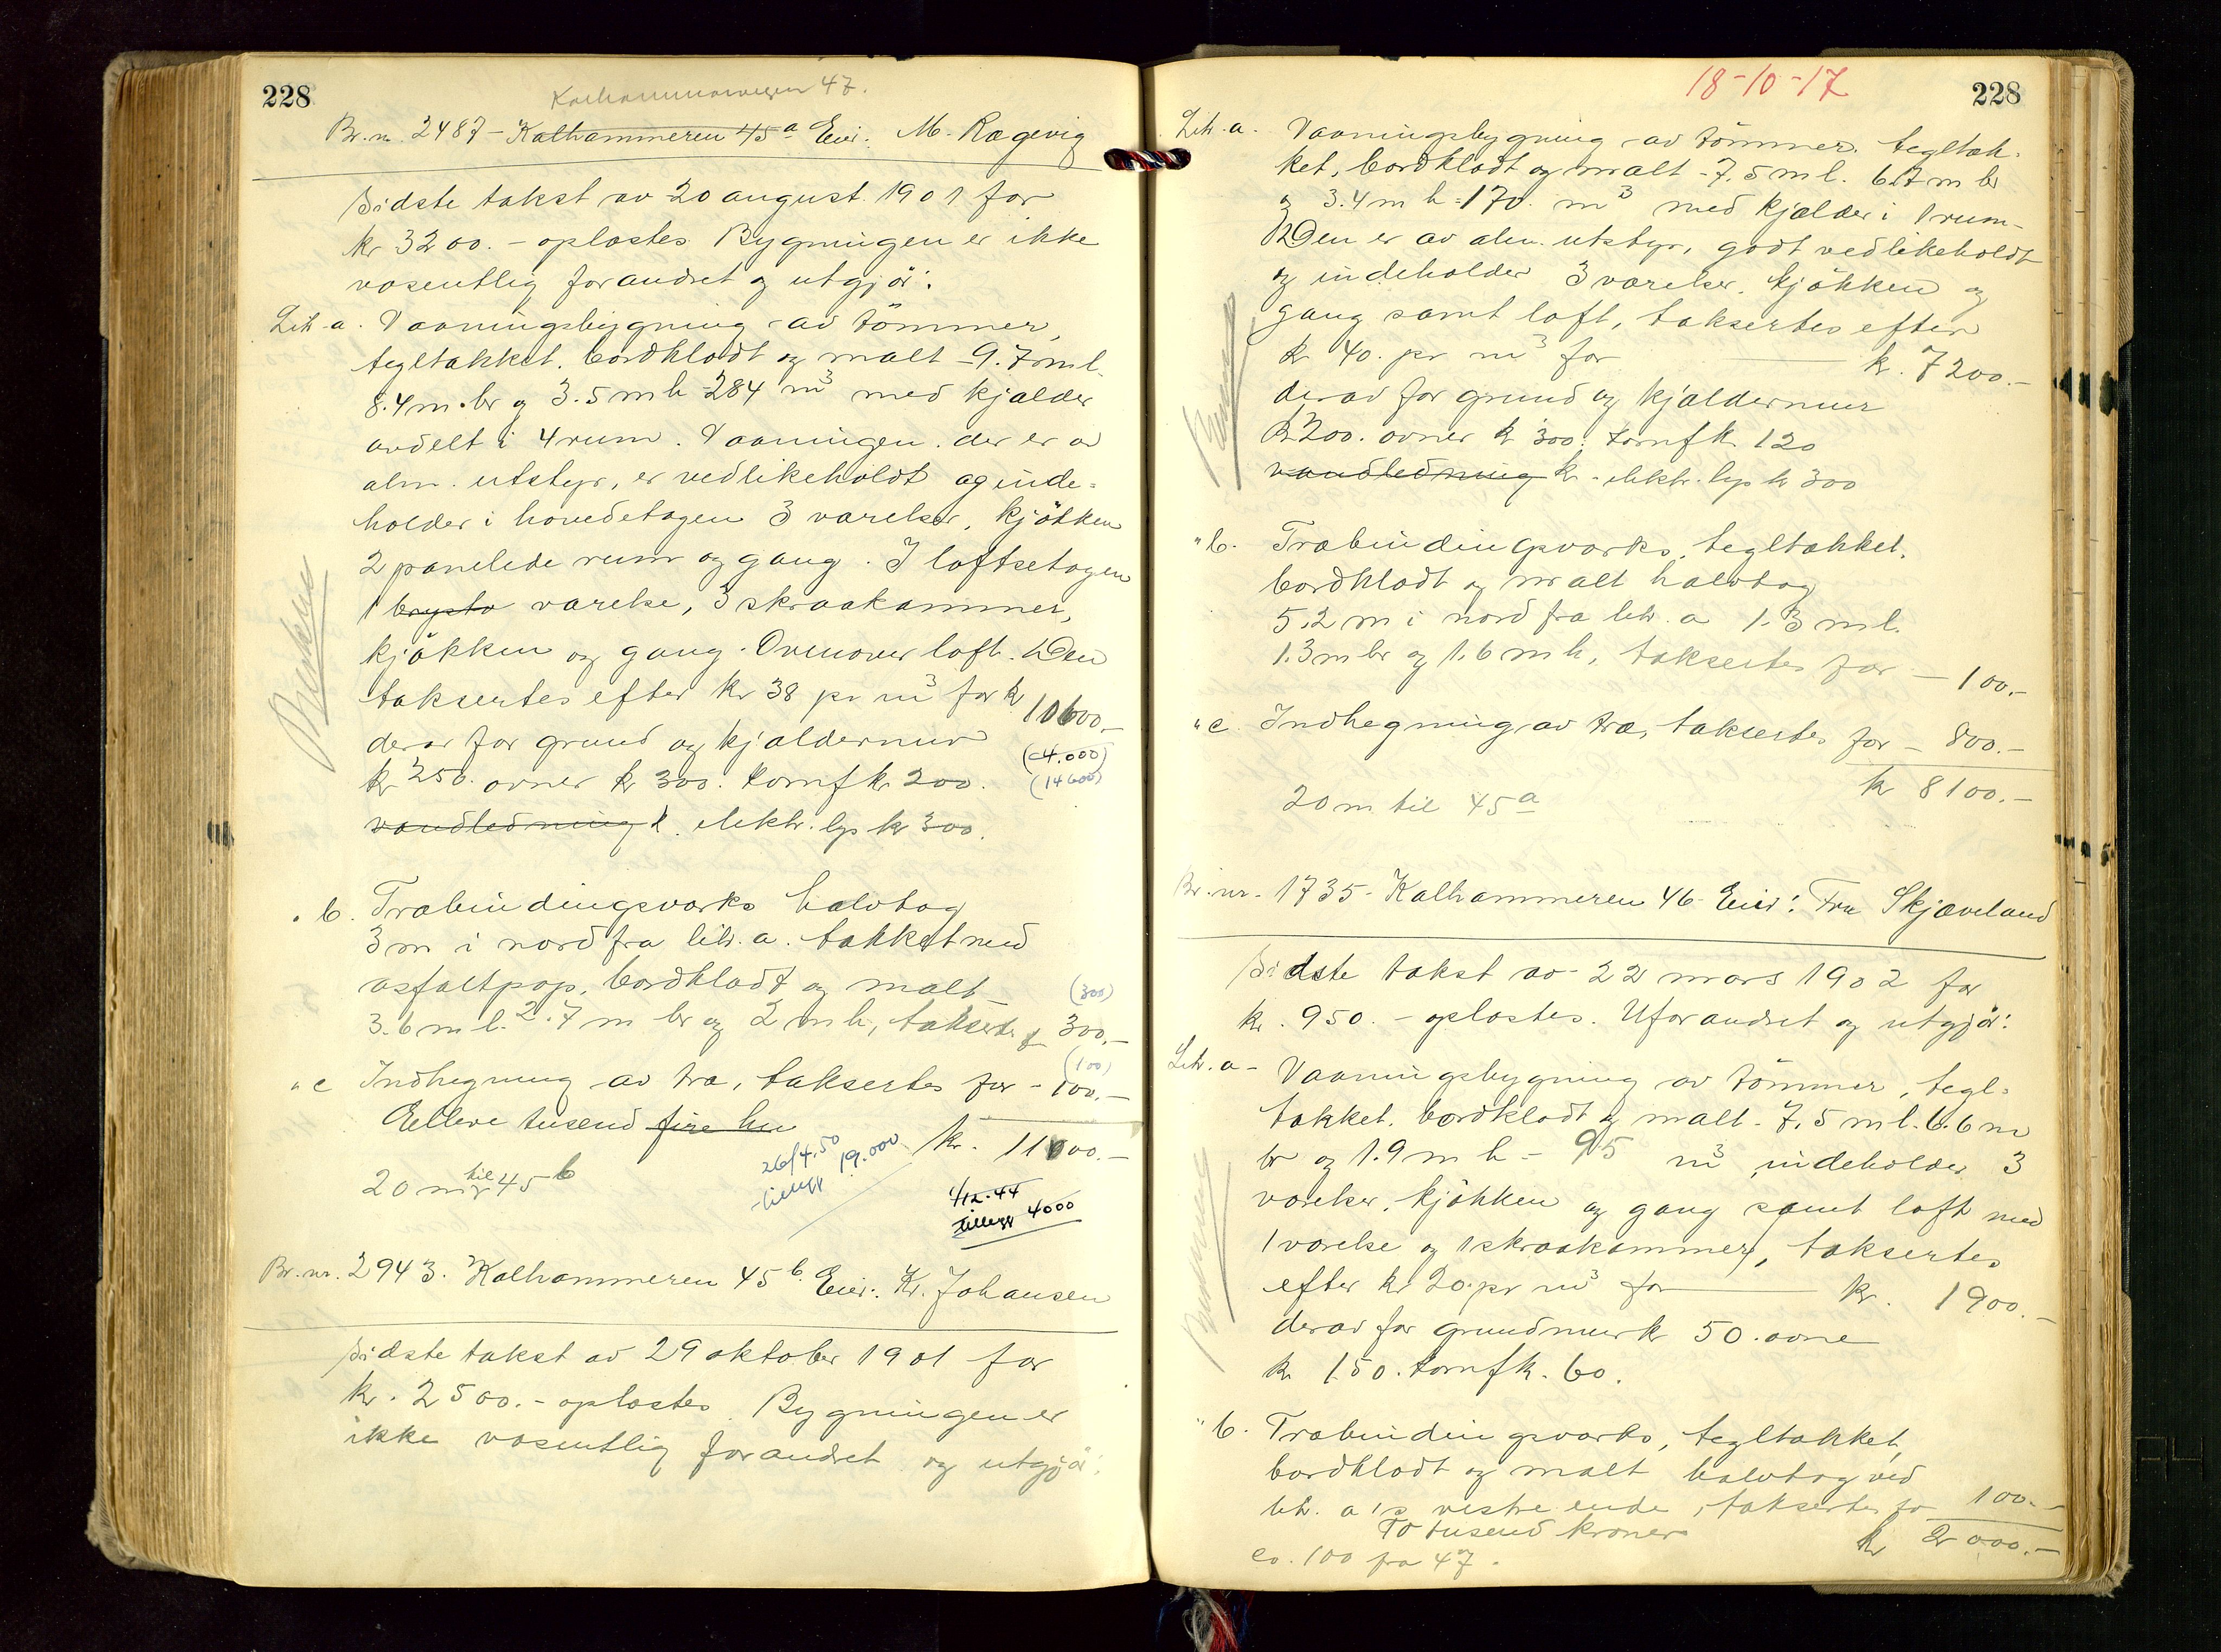 228
Kalhammarveien 47.
Br. nr. 2487 - Kalhammeren 45a Eier: M. Rægevig
Sidste takst av 20 august 1901 for
kr 3200.- oplæstes. Bygningen er ikke
væsentlig forandret og utgjör:
Litr. a. Vaaningsbygning av tömmer,
tegltækket, bordklædt og malt - 9.7 m l.
8.4 m. br og 3.5 m h - 284 m3 med kjælder
avdelt i 4 rum. Vaaningen der er av
alm. utstyr, er vedlikeholdt og inde-
holder i hovedetagen 3 værelser, kjökken
2 panelede rum og gang. I loftsetagen
1 brysto værelse, 3 skraakammer,
kjökken og gang. Ovenover loft. Den
taksertes efter kr 38 pr m3 for kr 10600.-
derav for grund og kjældermur (4.000)
kr 250. ovner kr 300. komf kr 200. (14600)
vandledning k. elektr. lys kr 300.
" b. Træbindingsverks halvtag
3 m i nord fra litr. a. tækket med
asfaltpap, bordklædt og malt (300)
3.6 m l. 2.7 m br og 2 m h, taksert f 300.-
(100)
" c Indhegning av træ, taksertes for - 100.-
Elleve tusend fire hu kr. 11000.-
20 m til 45b
26/4.50
tillegg 19.000
1/12.44
tillegg 4000
Br. nr. 2943. Kalhammeren 45b. Eier: Kr. Johansen
Sidste takst av 29 oktober 1901 for
kr. 2500.- oplæstes. Bygningen er
ikke væsentlig forandret og utgjör:
18-10-17
228
Litr. a. Vaaningsbygning av tömmer, tegltæk-
ket, bordklædt og malt - 7.5 m l. 6.7 m br
og 3.4 m h = 170. m3 med kjælder i 1 rum-
Den er av alm. utstyr, godt vedlikeholdt
og indeholder 3 værelser, kjökken og
gang samt loft, taksertes efter
kr 40. pr m3 for kr. 7200.-
derav for grund og kjældermur
kr 200. ovner kr 300. komf k 120
vandledning k - elektr. lys kr 300
" b. Træbindingsverks, tegltækket,
bordklædt og malt halvtag
5.2 m i nord fra litr. a 1.3 m l.
1.3 m br og 1.6 m h, taksertes for - 100.-
" c. Indhegning av træ, taksertes for - 800.-
kr 8100.-
20 m til 45a
Br. nr. 1735 - Kalhammeren 46 Eier: Fru Skjæveland
Sidste takst av 22 mars 1902 for
kr. 950.- oplæstes. Uforandret og utgjör:
Litr. a - Vaaningsbygning av tömmer, tegl-
tækket, bordklædt og malt - 7.5 m l. 6.6 m
br og 1.9 m h - 95 m3 indeholder 3
værelser, kjökken og gang samt loft med
1 værelse og 1 skraakammer, taksertes
efter kr 20. pr m3 for kr. 1900.-
derav for grundmur k 50. ovne
kr 150. komf k. 60.
" b. Træbindingsverks, tegltækket,
bordklædt og malt halvtag ved
litr. a's vestre ende, taksertes for 100.-
To tusend kroner kr 2000.-
ca. 100 fra 47.